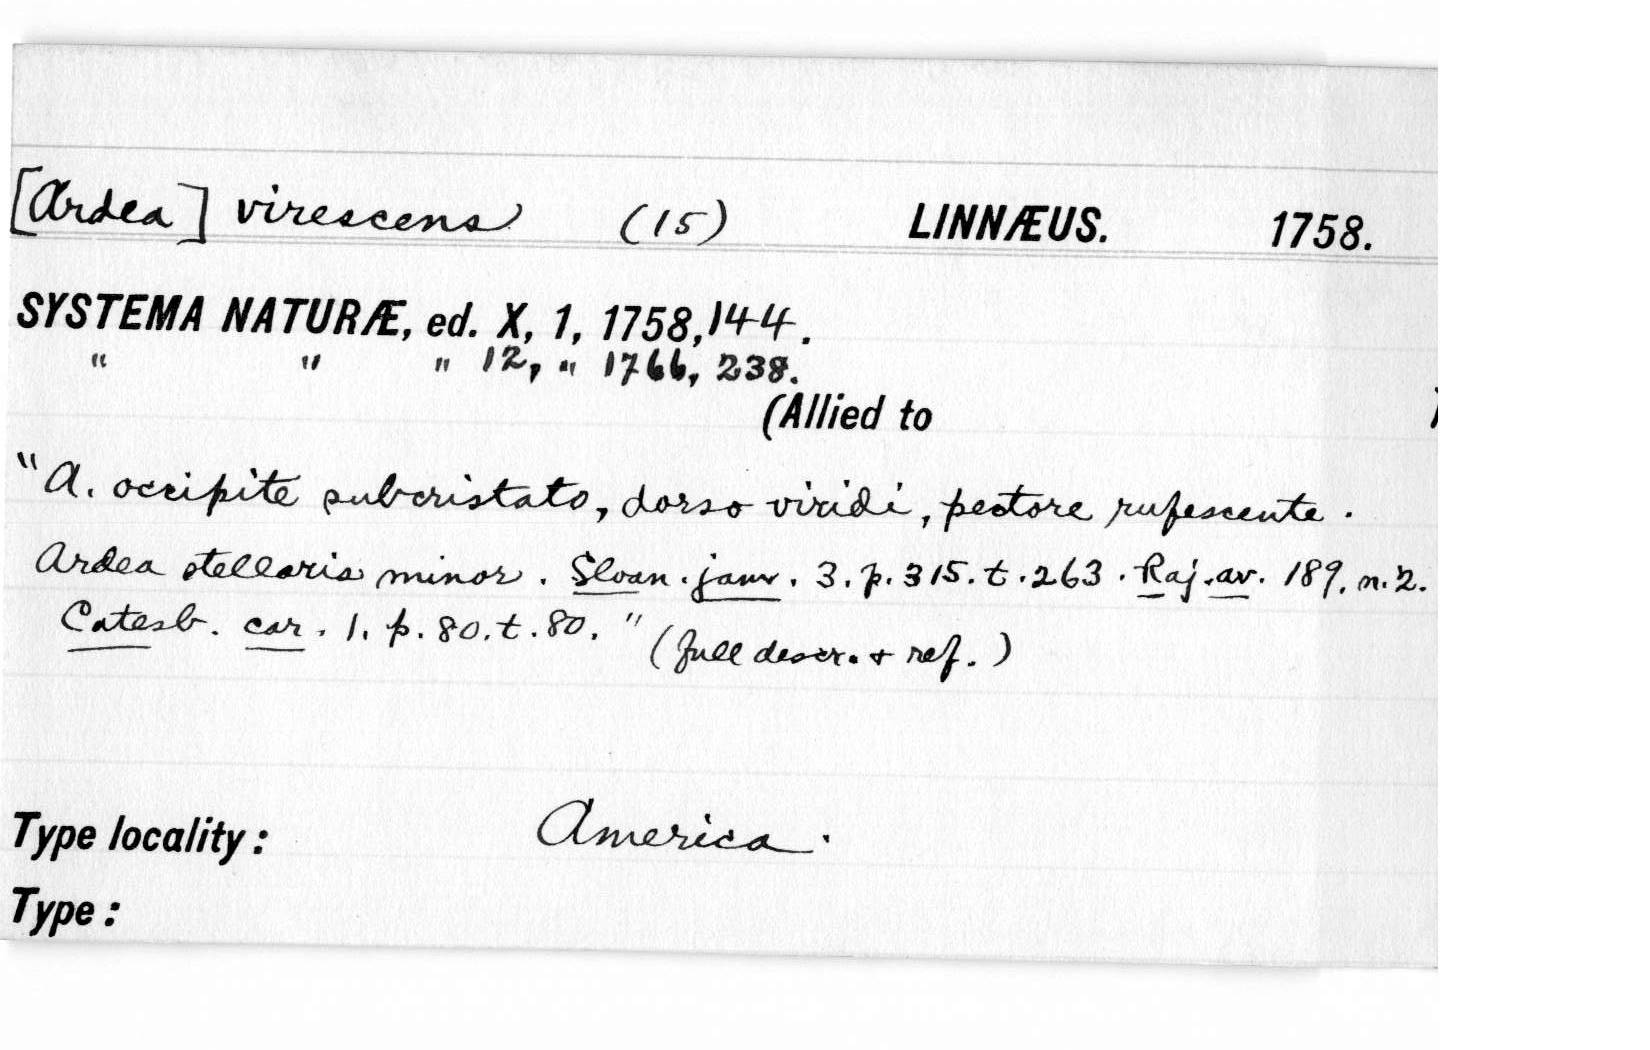 [Ardea] virescens (15) LINNÆUS. 1758.
SYSTEMA NATURÆ, ed. X, 1, 1758, 144.
" " " 12, " 1766, 238.
(Allied to )
"A. occipite subcristato, dorso viridi, pectore rufescente.
Ardea stellaris minor. Sloan. jam. 3. p. 315. t. 263. Raj. av. 189. n. 2.
Catesb. car. 1. p. 80. t. 80." (full descr. + ref.)
Type locality: America.
Type: